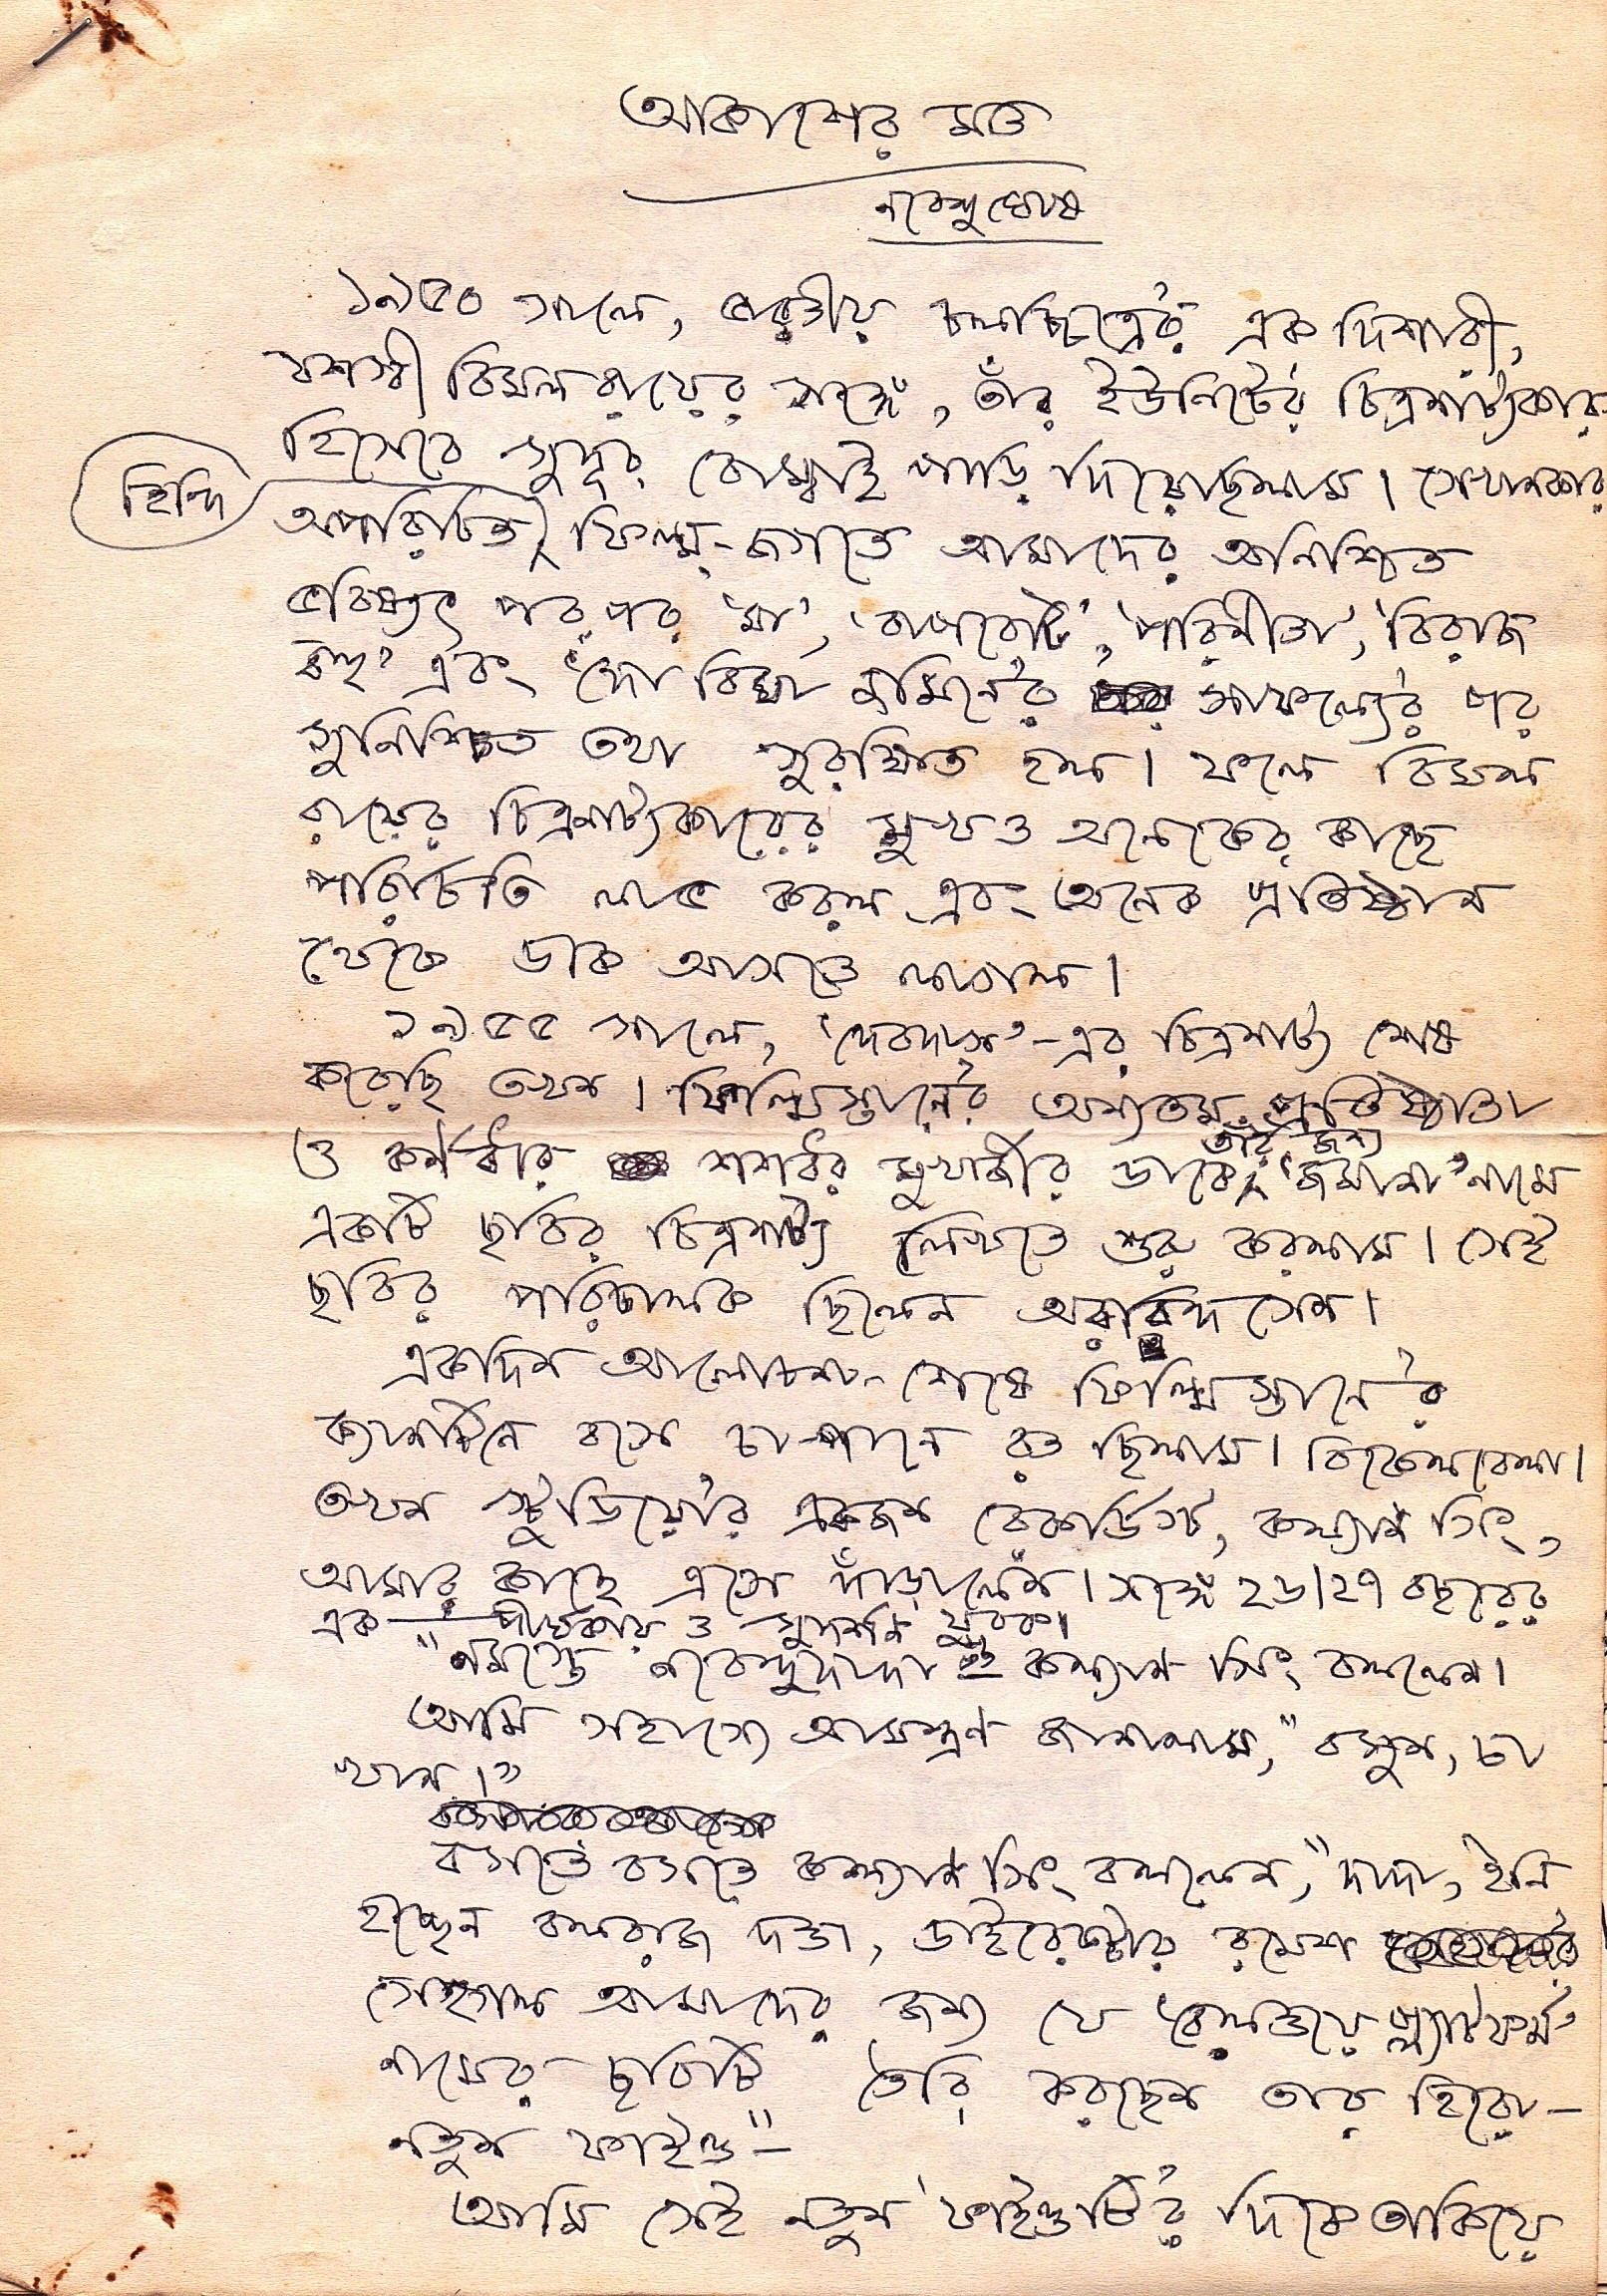 আকাশের মত
নবেন্দু ঘোষ
১৯৫০ সালে, ভারতীয় চলচ্চিত্রের এক দিশারী,
যশস্বী বিমল রায়ের সঙ্গে, তাঁর ইউনিটের চিত্রনাট্যকার
হিসেবে সুদূর বোম্বাই পাড়ি দিয়েছিলাম। সেখানকার
অপরিচিত হিন্দি ফিল্ম-জগতে আমাদের অনিশ্চিত
ভবিষ্যৎ পর পর 'মা', 'বাপবেটি', 'পরিণীতা', 'বিরাজ
বহু' এবং 'দো বিঘা জমিনে'র সাফল্যের পর
সুনিশ্চিত তথা সুরক্ষিত হল। ফলে বিমল
রায়ের চিত্রনাট্যকারের মুখও অনেকের কাছে
পরিচিতি লাভ করল এবং অনেক প্রতিষ্ঠান
থেকে ডাক আসতে লাগল।
১৯৫৫ সালে, 'দেবদাস'-এর চিত্রনাট্য শেষ
করেছি তখন। ফিল্মিস্তানের অন্যতম প্রতিষ্ঠাতা
ও কর্ণধার শশধর মুখার্জীর ডাকে তাঁর জন্য 'জমানা' নামে
একটি ছবির চিত্রনাট্য লিখতে শুরু করলাম। সেই
ছবির পরিচালক ছিলেন অরবিন্দ সেন।
একদিন আলোচনা-শেষে ফিল্মিস্তানে'র
ক্যানটিনে বসে চা-পানে রত ছিলাম। বিকেলবেলা।
তখন স্টুডিয়ো'র একজন রেকর্ডিস্ট, কল্যাণ সিং,
আমার কাছে এসে দাঁড়ালেন। সঙ্গে ২৬।২৭ বছরের
এক দীর্ঘকায় ও সুদর্শন যুবক।
"নমস্তে নবেন্দুদাদা কল্যাণ সিং বললেন।
আমি সহাস্যে আমন্ত্রণ জানালাম, "বসুন, চা
খান।"
বসতে বসতে কল্যাণ সিং বললেন, "দাদা, ইনি
হচ্ছেন বলরাজ দত্ত, ডাইরেক্টার রমেশ
সেহগল আমাদের জন্য যে 'রেলওয়ে প্ল্যাটফর্ম'
নামের ছবিটি তৈরি করছেন তার হিরো—
নতুন ফাইণ্ড"—
আমি সেই নতুন 'ফাইণ্ডটি'র দিকে তাকিয়ে